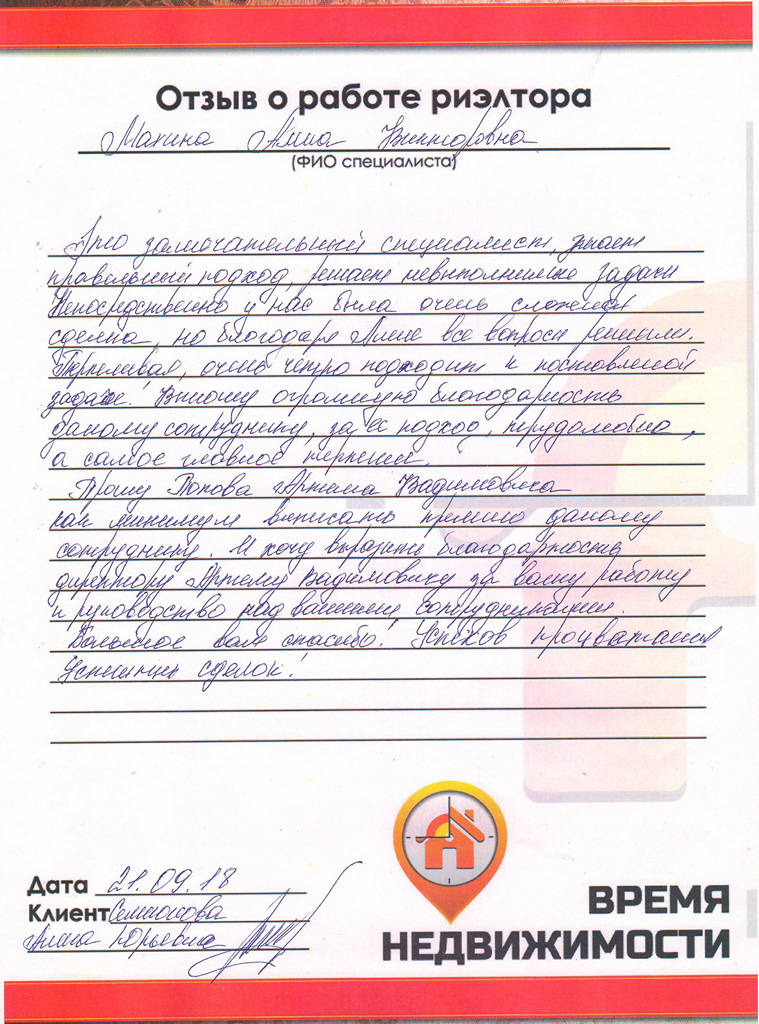 Отзыв о работе риэлтора
Махина Алина Викторовна
(ФИО специалиста)
Это замечательный специалист, знает
правельный подход, решает невыполнимые задачи
Непосредственно у нас была очень сложная
сделка, но благодаря Алине все вопросы решили.
Терпеливая, очень четко подходит к поставленой
задаче! Выношу огромную благодарность
даному сотруднику, за ее подход, трудолюбие,
а самое главное терпение.
Прошу Попова Артема Вадимовича
как минимум выписать премию даному
сотруднику. И хочу выразить благодарность
директору Артему Вадимовичу за вашу работу
и руководство над вашими сотрудниками.
Большое вам спасибо! Успехов процветания
Успешных сделок!
Дата 21.09.18
Клиент Семионова
Алина Юрьевна
ВРЕМЯ
НЕДВИЖИМОСТИ